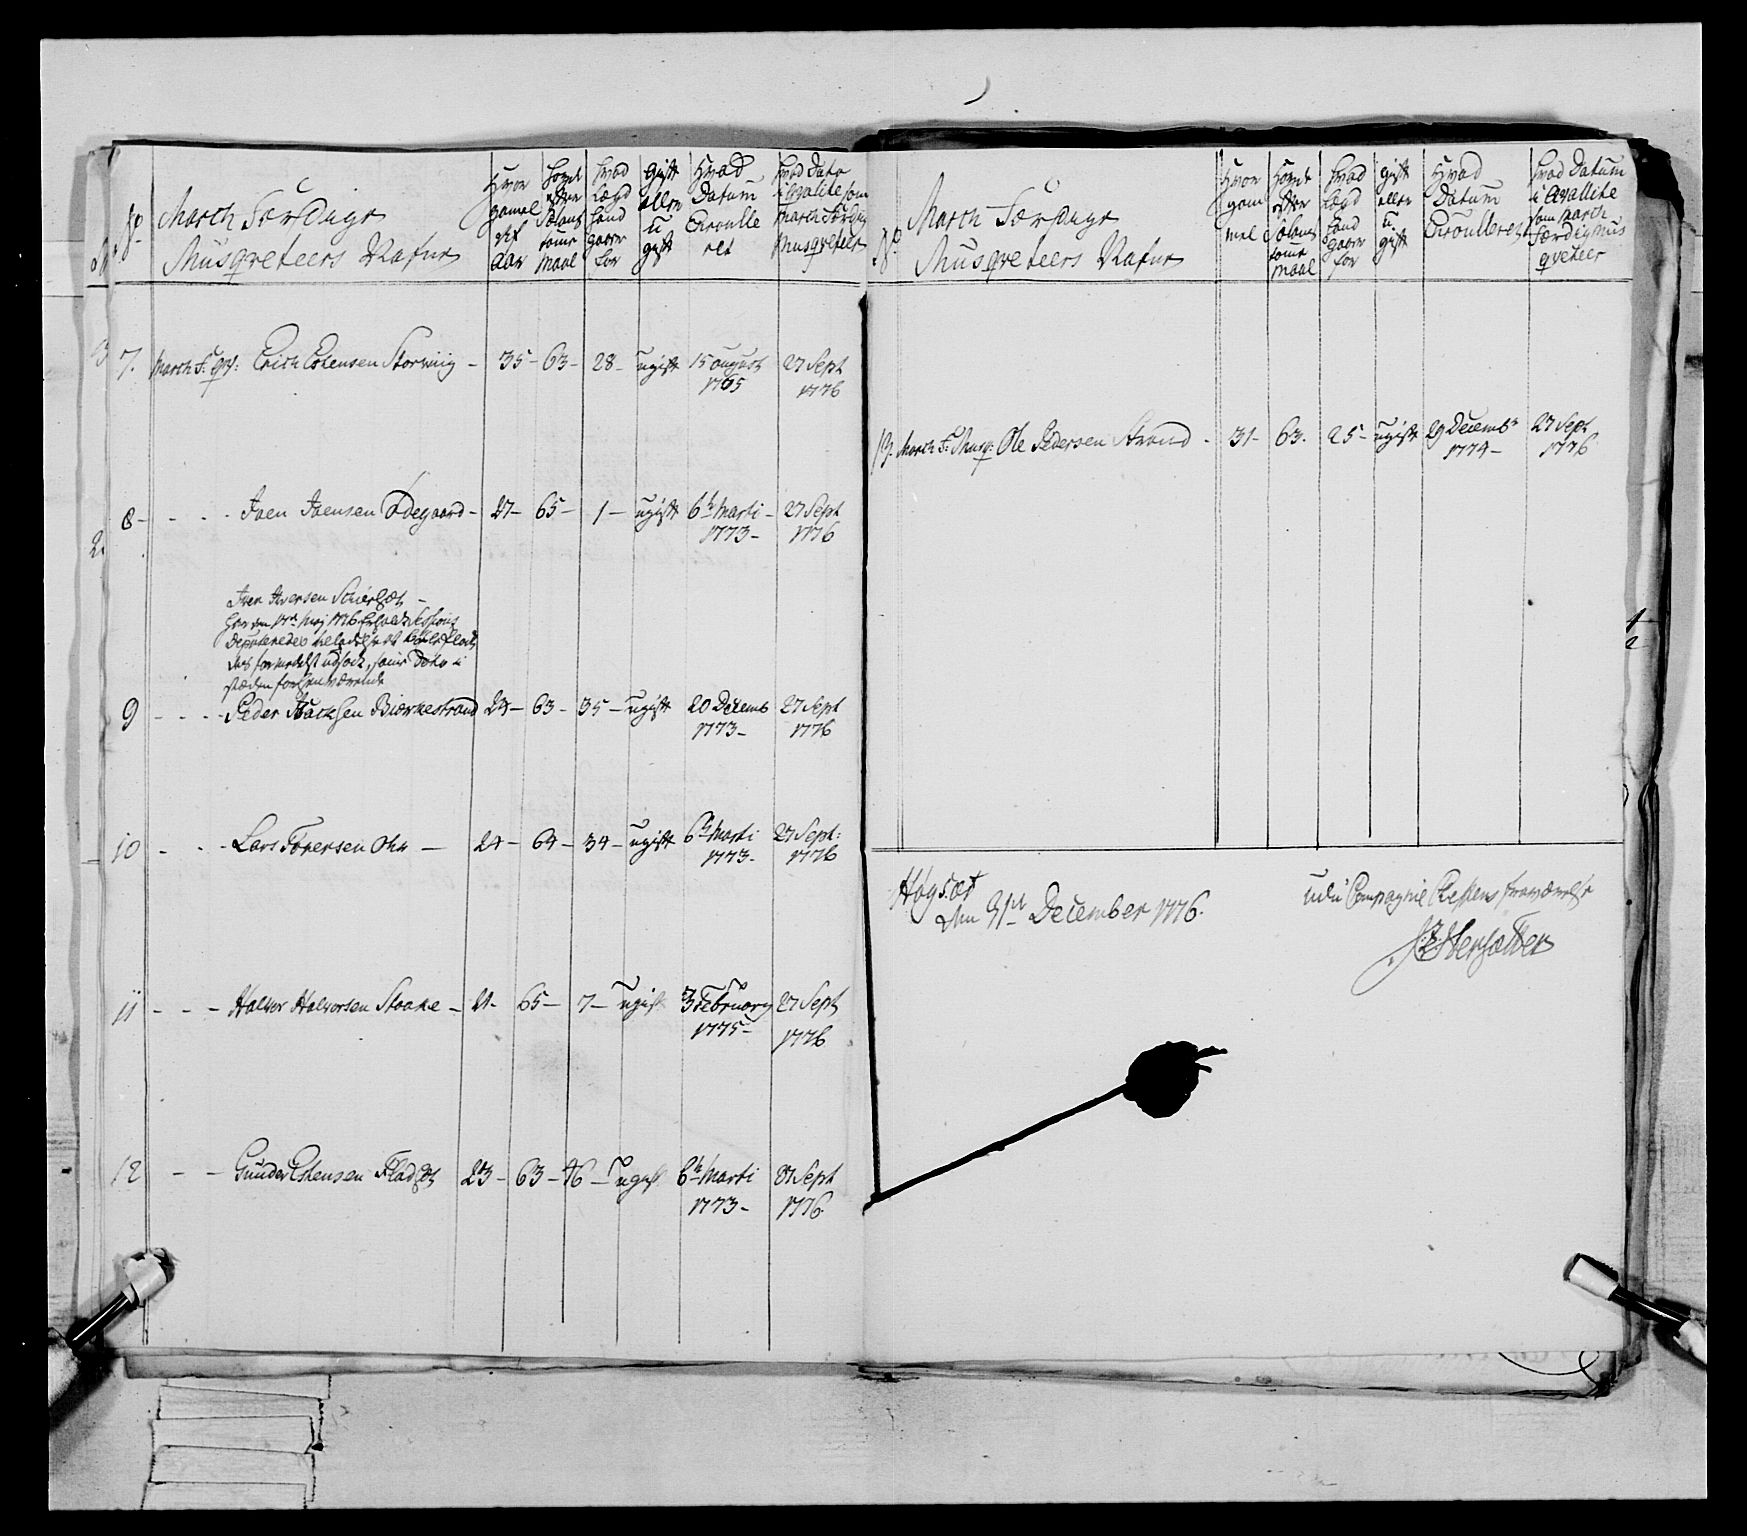 No
March Færdige
Musqveteers Nafne
Hvor gamel det Aar
Høyde efter Solens tome Maal
hvad Lægd hand gaaer for
Gift eller u gift
Hvad Datum Enroulleret
hvad Dato i Qvalite som March Færdig Musqveteer
3
7. March F: qv: Erich Estensen Storvig - 35 - 63 - 28 - ugift 15 august 1765 27 Sept 1776
2.
8 - - - - Iven Ivensen Ødegaard - 27 - 65 - 1 - ugift 6te Marti - 1773 - 27 Sept 1776
Iver Iversen
9 - - - - Peder Isachsen Biørkestrand 24 - 63 - 35 - ugift 20 Decemb 1773 - 27 Sept 1776
10 - - - Lars Torersen - 24 - 64 - 34 - ugift 6te Marti 1773 - 27 Sept: 1776
11 - - - Halvor Halvorsen Staake - 21 - 65 - 7 - ugift 3 February 1775 - 27 Sept 1776
12 - - Gunder Estensen Fladset 23 - 63 - 46 - ugift 6te Marti 1773 - 27 Sept 1776
No
March Færdige
Musqveteers Nafne
Hvor gam mel
Høyde efter Solens tome Maal
hvad Lægd hand gaaer for
gift eller u. gift
Hvad Datum Enrolleret
hvad Datum i Qvallite som March Færdig Mus qveteer
13. March F: Musq: Ole Pedersen Strand - 31 - 63 - 25 - ugift 29 Decembr 1774 - 27 Sept 1776
1
2
Høgsæt
den 31te December 1776.
udi Compagnie Cheffens fraværelse